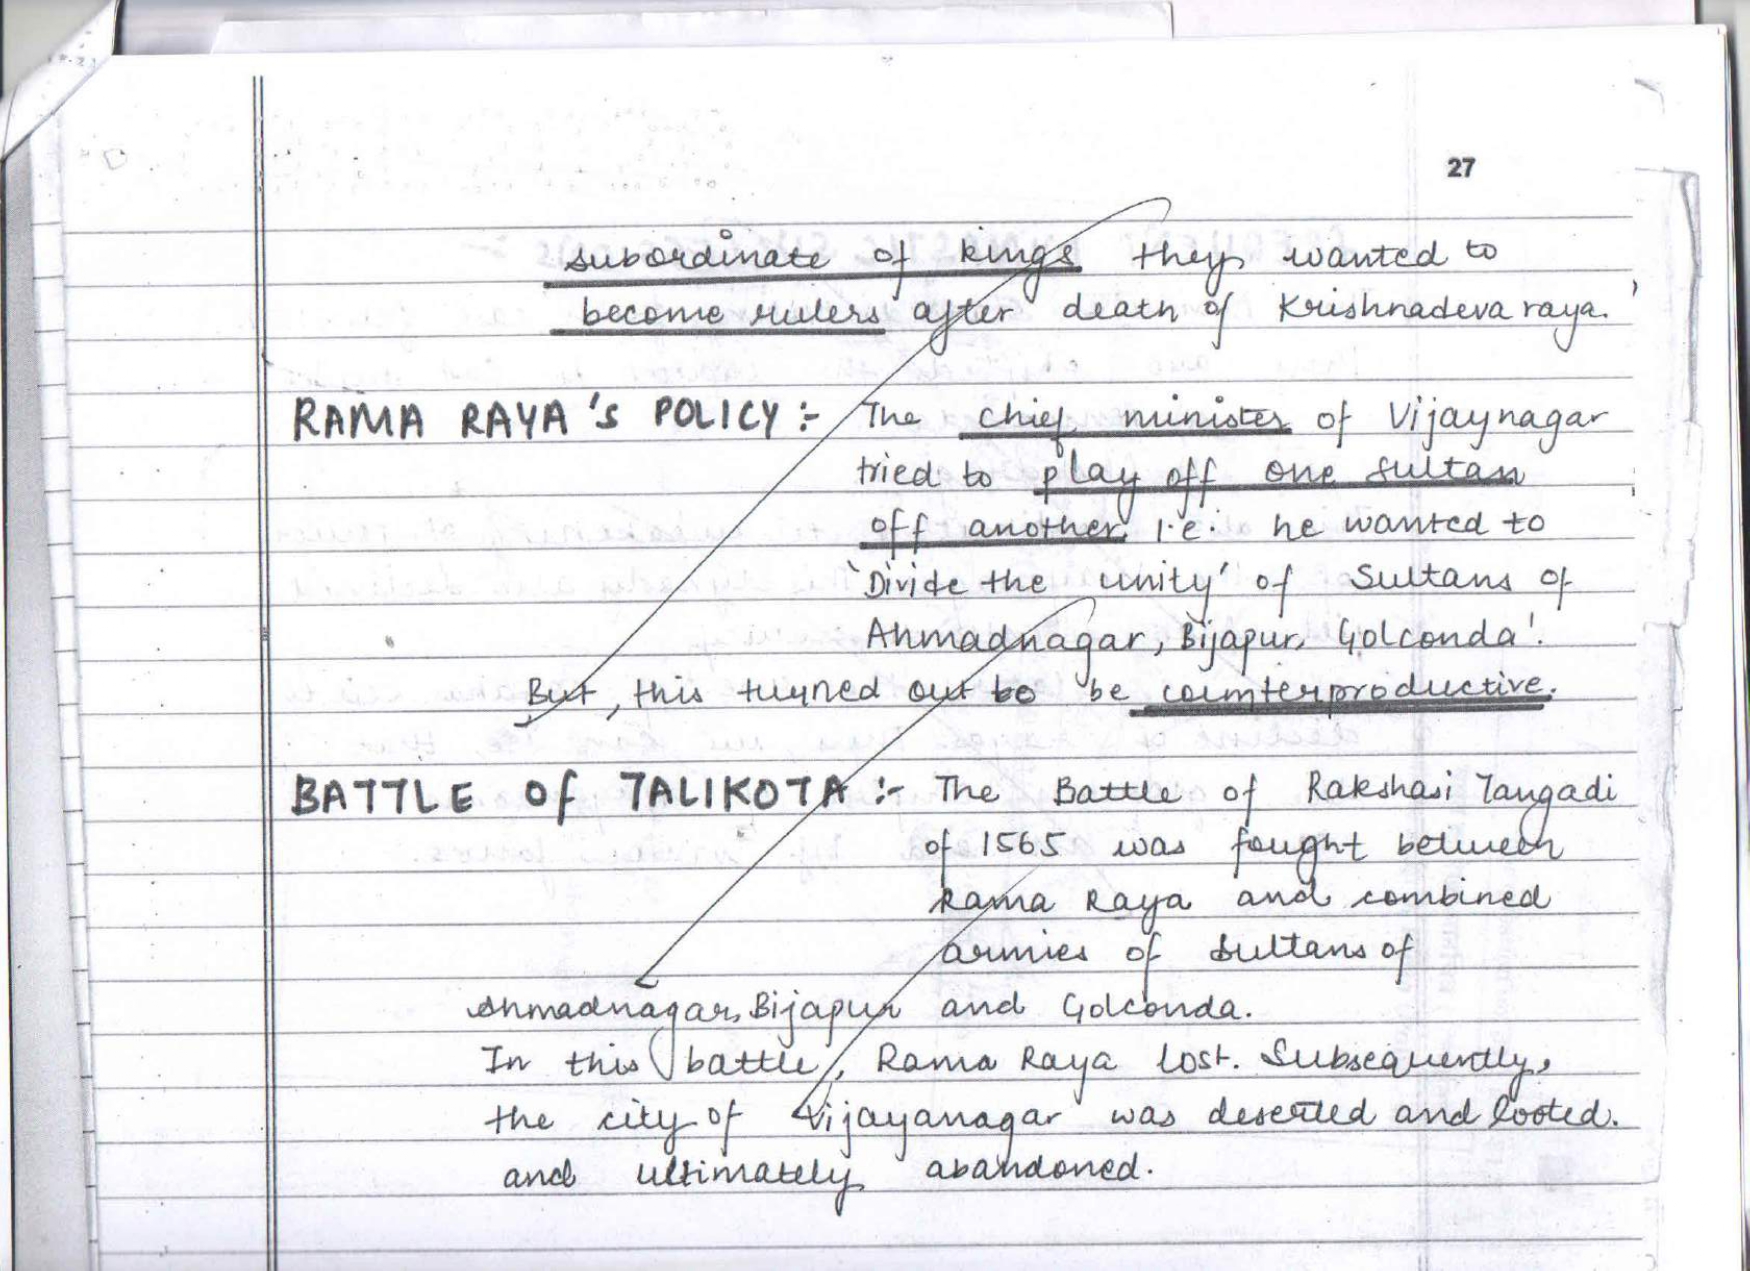 27
subordinate of kings they wanted to
become rulers after death of Krishnadeva raya.
RAMA RAYA's POLICY :- The chief minister of Vijaynagar
tried to play off one sultan
off another i.e. he wanted to
'Divide the unity' of Sultans of
Ahmadnagar, Bijapur, Golconda'.
But, this turned out to be counterproductive.
BATTLE Of TALIKOTA :- The Battle of Rakshasi Tangadi
of 1565 was fought between
Rama Raya and combined
armies of Sultans of
Ahmadnagar, Bijapur and Golconda.
In this battle, Rama Raya lost. Subsequently,
the city of Vijayanagar was deserted and looted.
and ultimately abandoned.